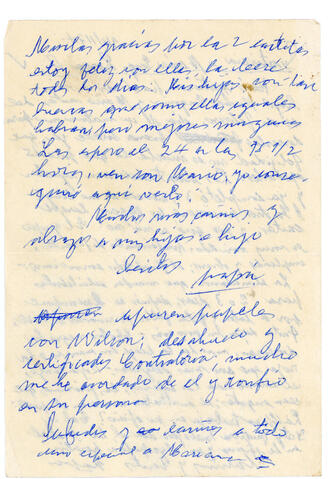 Muchas gracias por la 2 cartitas
estoy feliz con ellas, la leeré
todos los días. Mis hijas son tan
buenas que como ellas iguales
habrán pero mejores ninguna
Las espero el 24 a las 9 o 9 1/2
horas, ven con Mario, yo conse-
guiré aquí verlo!
Muchos cariños y
abrazos a mis hijas e hijo
papá
apuren papeles
con Wilson; desahucio y
certificados Contraloría, mucho
me he acordado de el y confío
en su persona
Saludos y cariños a todos
uno especial a Mariana